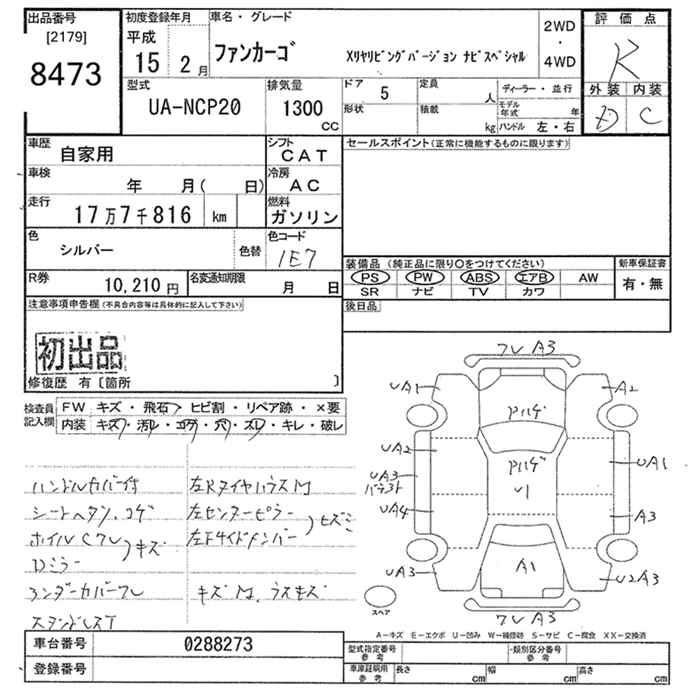 出品番号
[2179]
8473
初度登録年月
平成
15 2月
車名・グレード
ファンカーゴ
Xリヤリビングバージョン ナビスペシャル
2WD
・
4WD
評価点
R
外装 内装
D C
型式
UA-NCP20
排気量
1300
CC
ドア 5
形状
定員 人
積載 kg
ディーラー・並行
モデル年式 年
ハンドル 左・右
車歴
自家用
シフト
CAT
車検
年 月( 日)
冷房
AC
走行
17万7千816 km
燃料
ガソリン
色
シルバー
色替
色コード
1E7
R券
10,210円
名変通知期限
月 日
セールスポイント(正常に機能するものに限ります)
装備品 (純正品に限り○をつけてください)
PS PW ABS エアB AW
SR ナビ TV カワ
新車保証書
有・無
後日品
注意事項申告欄(不具合内容等は具体的に記入して下さい)
初出品
修復歴 有 [箇所 ]
検査員
記入欄
FW キズ・飛石・ヒビ割・リペア跡・×要
内装 キズ・汚レ・コゲ・穴・スレ・キレ・破レ
ハンドルカバー付
シートヘタリ、コゲ
ホイルCワレ
Dミラー
キズ
アンダーカバーワレ
左RタイヤハウスM
左センターピラー
左Fサイドメンバー
キズM、ウスキズ
ワレ A3
UA1
A2
Pハゲ
UA2
Pハゲ
U1
UA1
UA3
UA4
A3
UA3
A1
U2 A3
ワレ A3
スペア
A-キズ E-エクボ U-凹み W-補修跡 S-サビ C-腐食 XX-交換済
車台番号
0288273
登録番号
型式指定番号
参考
類別区分番号
参考
車庫証明用
参考
長さ cm
幅 cm
高さ cm